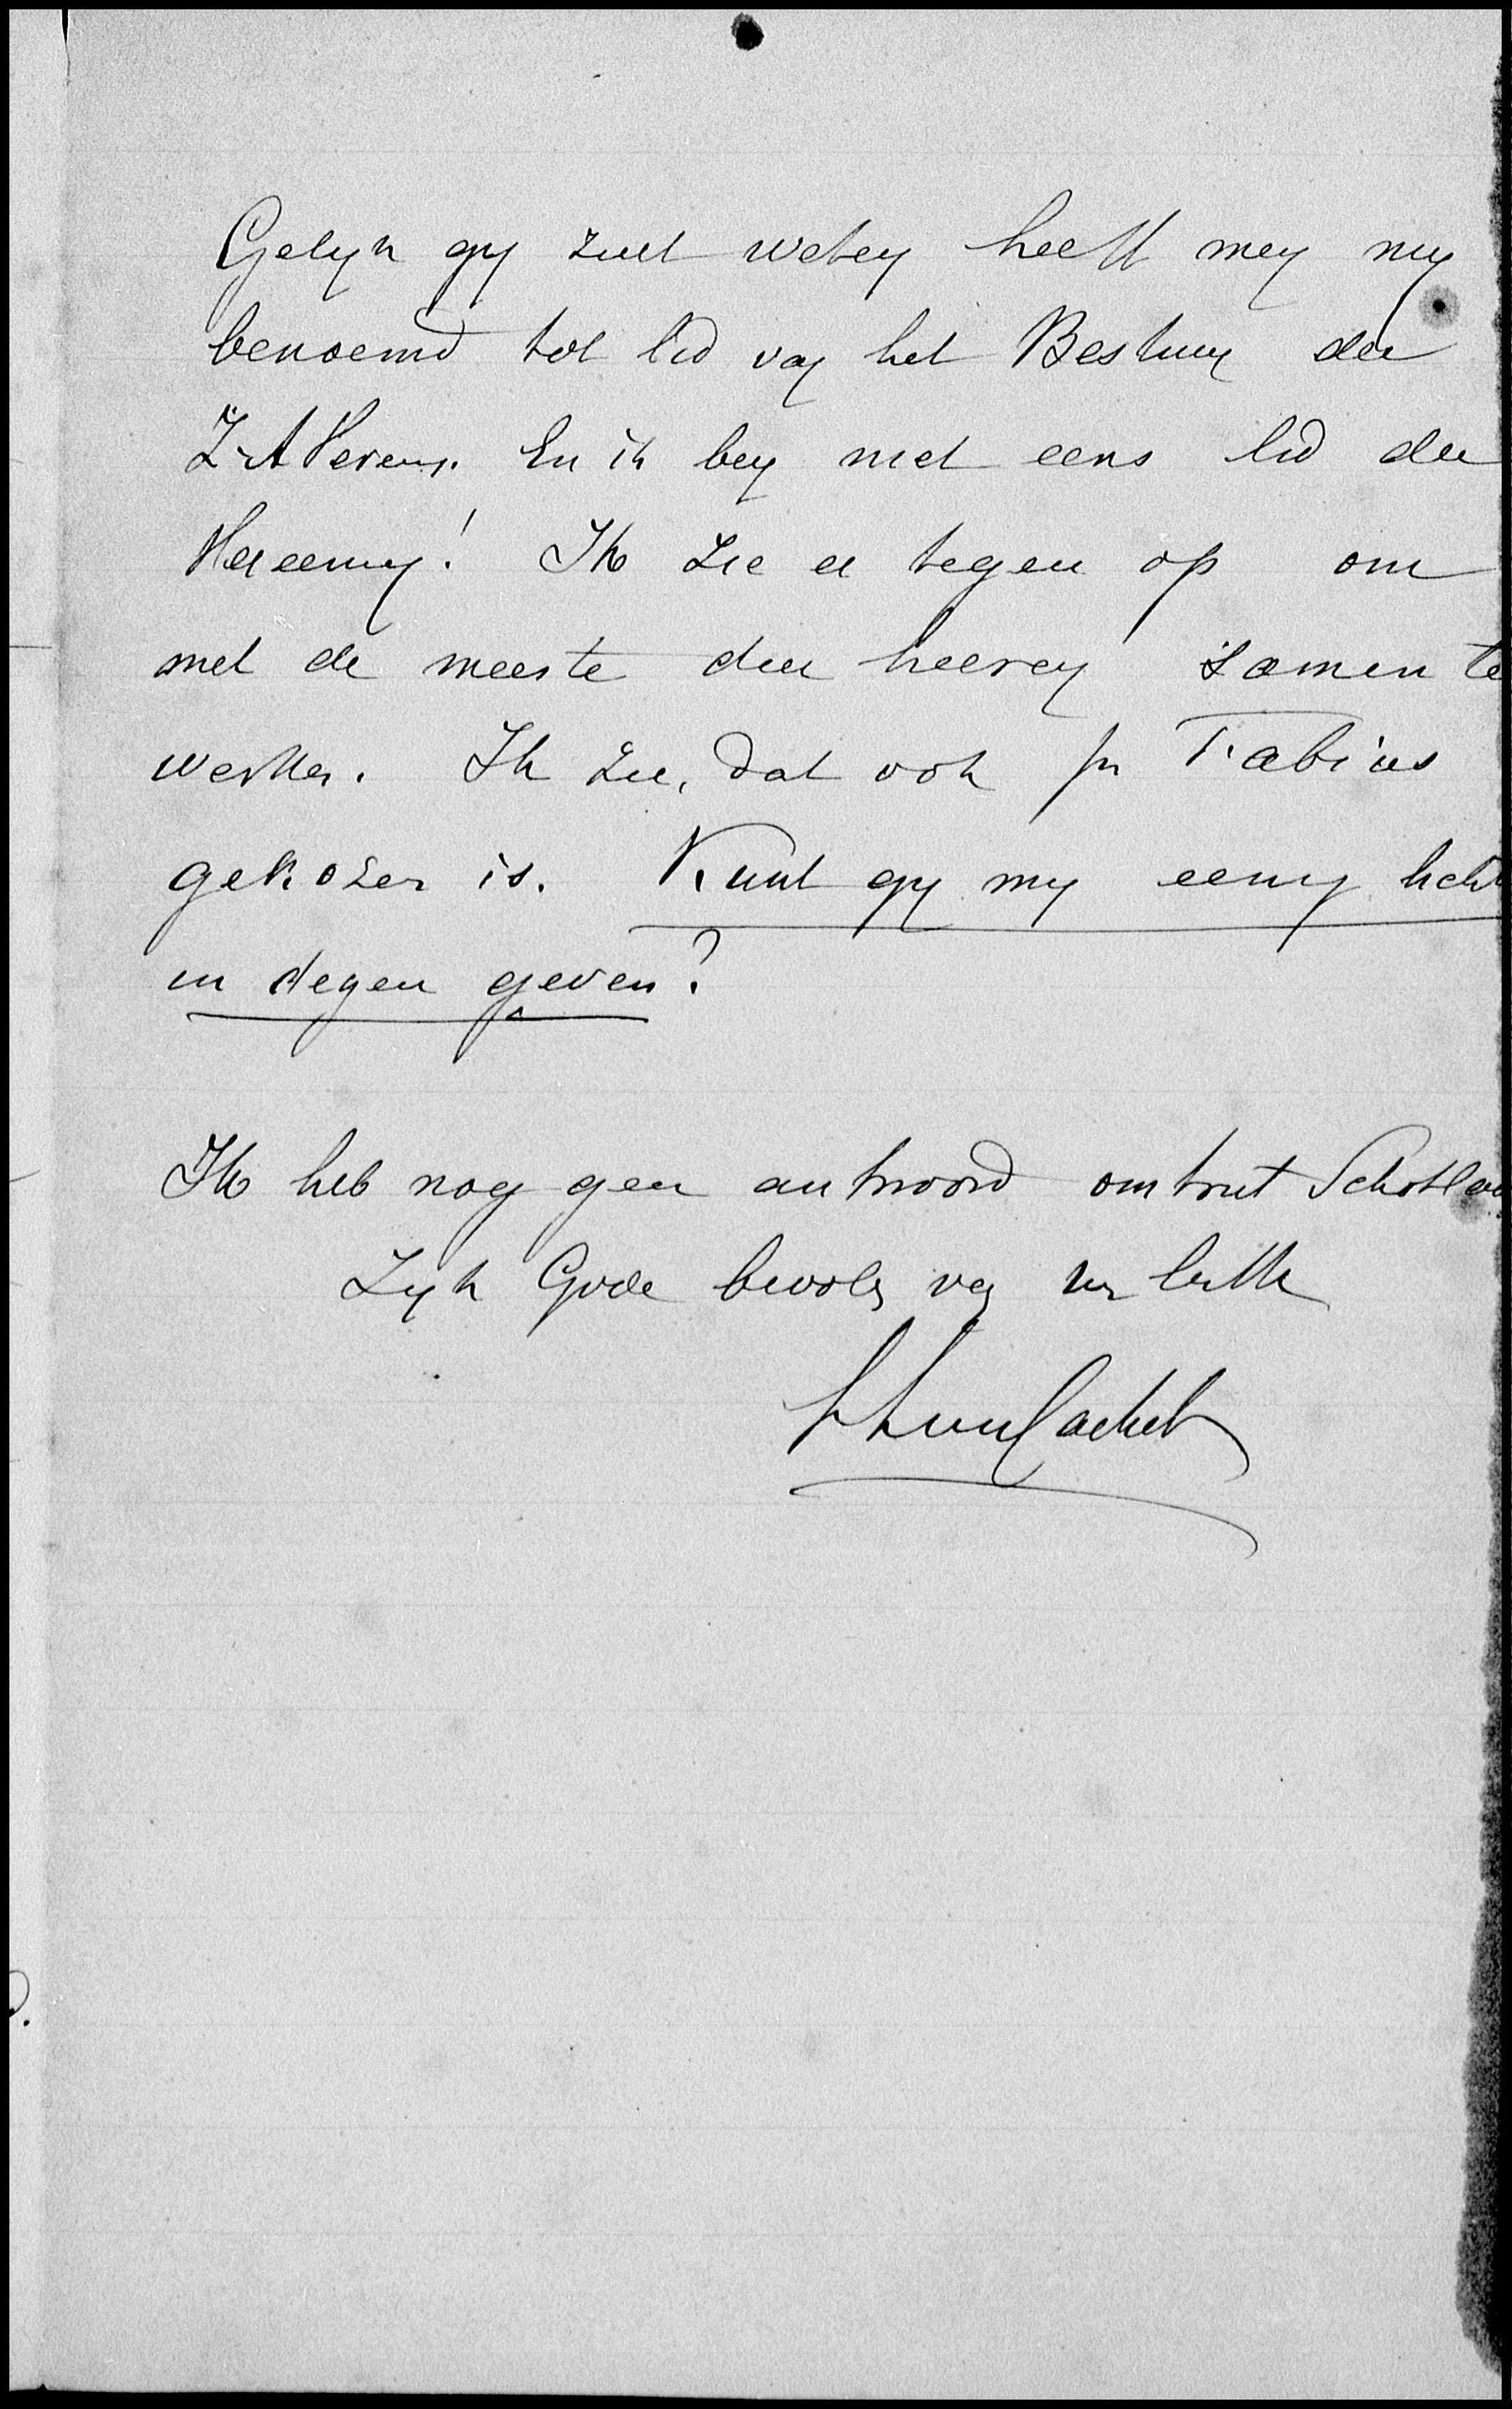 Gelyk gy zult weten heeft men my
benoemd tot lid van het Bestuur der
Z-A Vereen. En ik ben niet eens lid der
Vereenig! Ik zie er tegen op om
met de meeste der heeren samen te
werken. Ik zie, dat ook Fabius
gekozen is. Kunt gy my eenig licht
in dezen geven?
Ik heb nog geen antwoord omtrent Schotlan
Zyt Gode bevolen van
F Lion Cachet